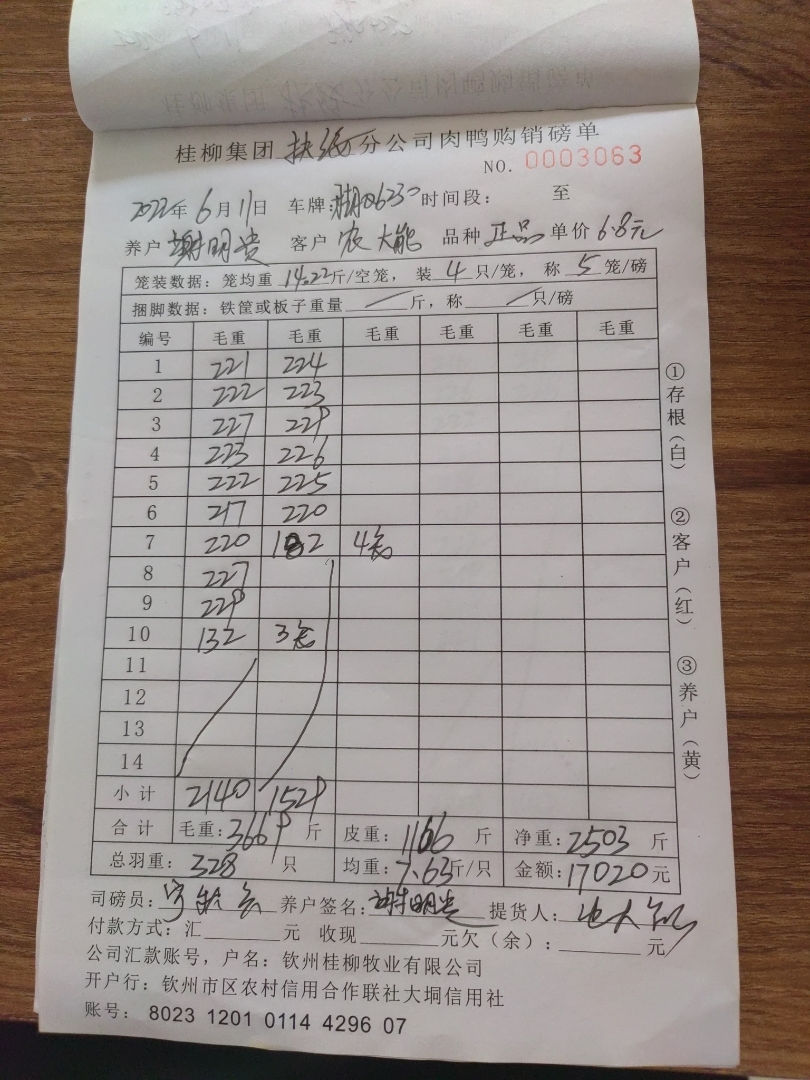 桂柳集团 分公司肉鸭购销磅单
NO. 0003063
2022年 6月11日 车牌: 时间段: 至
养户 谢明贵 客户 农大能 品种 正品 单价 6.8元
笼装数据: 笼均重 14.22斤/空笼, 装 4 只/笼, 称 5 笼/磅
捆脚数据: 铁筐或板子重量 / 斤, 称 / 只/磅
编号 毛重 毛重 毛重 毛重 毛重
1 221 224
2 222 223
3 227 229
4 223 226
5 222 225
6 217 220
7 220 182 4笼
8 227
9 229
10 132 3笼
11
12
13
14
小计 2140 1529
合计 毛重: 3669 斤 皮重: 1166 斤 净重: 2503 斤
总羽重: 328 只 均重: 7.63斤/只 金额: 17020元
①存根(白)
②客户(红)
③养户(黄)
司磅员: 养户签名: 谢明贵 提货人:
付款方式: 汇 元 收现 元欠(余): 元
公司汇款账号, 户名: 钦州桂柳牧业有限公司
开户行: 钦州市区农村信用合作联社大垌信用社
账号: 8023 1201 0114 4296 07